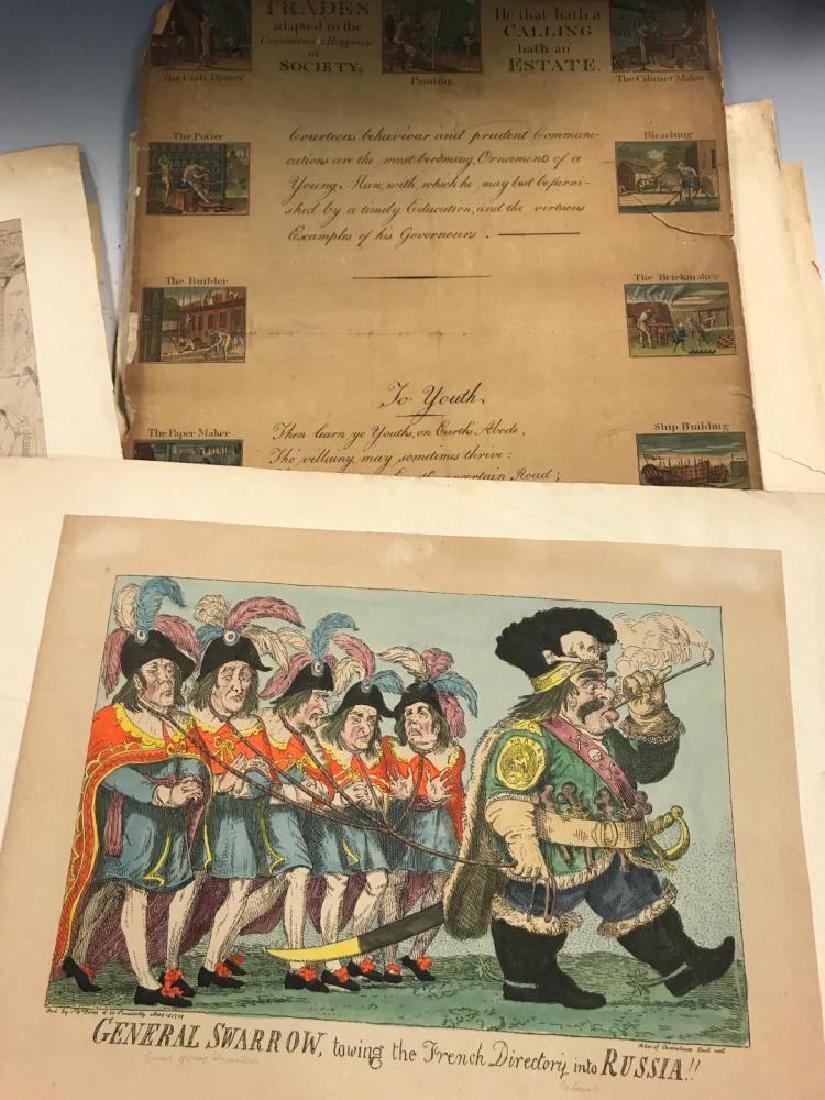 TRADES
adapted to the
of
SOCIETY.
He that hath a
CALLING
hath an
ESTATE.
The Glass Blower
Painting
The Cabinet Maker
The Potter
Courteous behaviour and prudent Communi-
cations are the most becoming Ornaments of a
Young Man; with which he may best be furni-
shed by a timely Education, and the virtuous
Examples of his Governours.
Bleaching
The Builder
The Brickmaker
To Youth.
The Paper Maker
Then learn ye Youths, on Earth's Abode,
Tho' villainy may sometimes thrive:
uncertain Road;
Ship Building
GENERAL SWARROW, towing the French Directory into RUSSIA!!